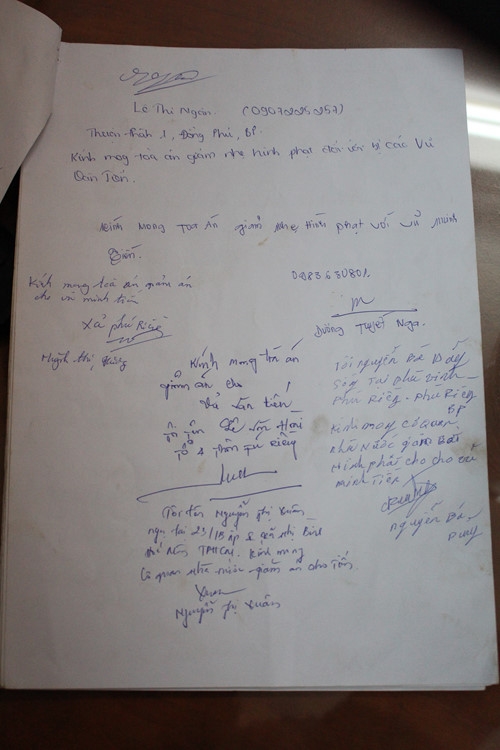 Lê Thị Ngân. (0907225257)
Thuận Phú 1, Đồng Phú, BP.
Kính mong toà án giảm nhẹ hình phạt đối với bị cáo Vũ
Văn Tiến.
Kính mong Toà Án giảm nhẹ Hình phạt với vũ minh
Tiến.
Kính mong toà án giảm án
cho vũ minh tiến
Xã phú Riềng
Huỳnh thị
Dương Tuyết Nga.
Kính mong tòa án
giảm án cho
Vũ Văn tiến!
Tôi Nguyễn Bá Duy
Sống Tại phú
Phú Riềng - Phú Riềng
BP
Kính mong cơ quan
Nhà Nước giảm
Hình phạt cho cho
minh Tiến
Nguyễn Bá
Duy
Tôi tên Nguyễn thị Xuân
ngụ tại 23/1B ấp 2 xã nhị Bình
TPHCM. Kính mong
Cơ quan nhà nước giảm án cho Tiến.
Nguyễn thị Xuân